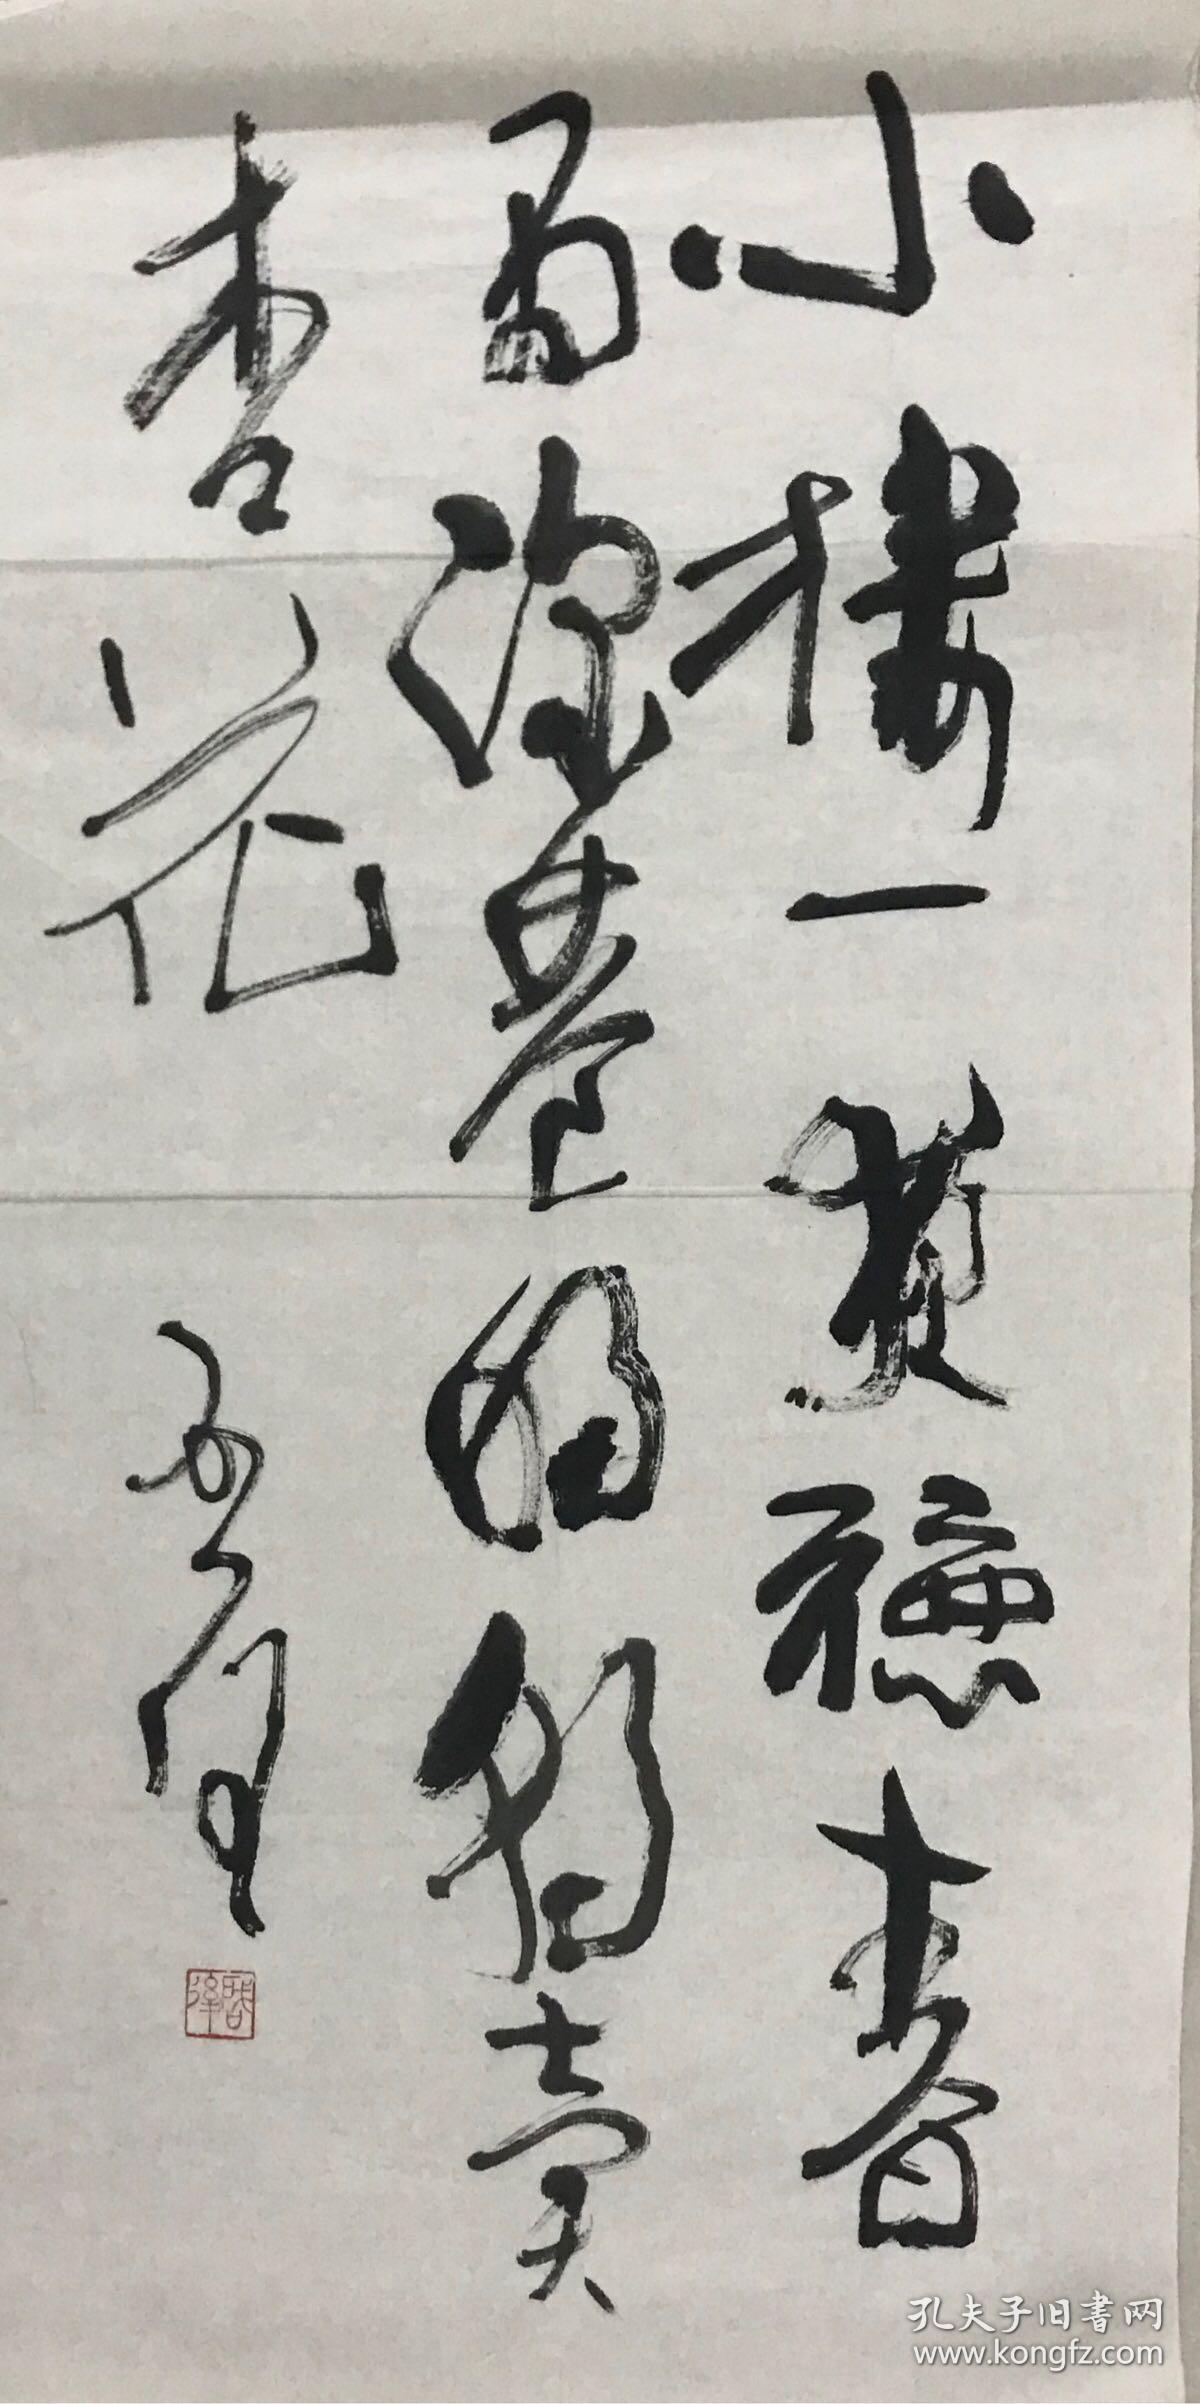 小楼一夜听春
雨深巷明朝卖
杏花
孔夫子旧书网
www.kongfz.com